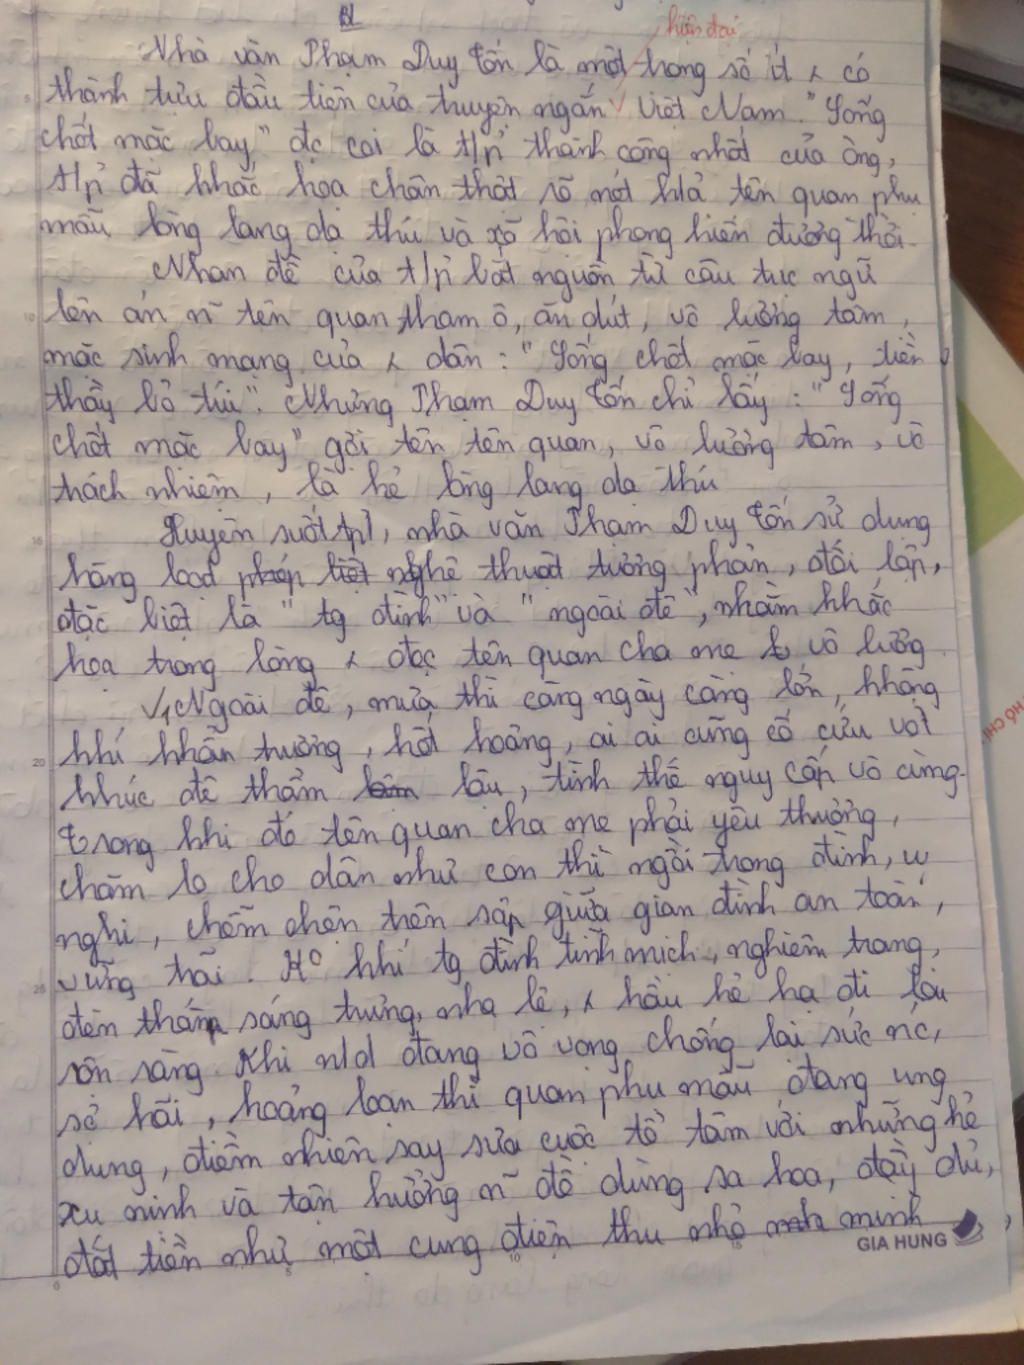 hiện đại
Nhà văn Phạm Duy Tốn là một trong số ít λ có
thành tựu đầu tiên của truyện ngắn √ Việt Nam. "Sống
chết mặc bay" đc coi là t/p' thành công nhất của ông,
t/p' đã khắc họa chân thật rõ nét tên quan phụ
mẫu lòng lang dạ thú và xã hội phong kiến đương thời.
Nhan đề của t/p' bắt nguồn từ câu tục ngữ
lên án n~ tên quan tham ô, ăn đút, vô lương tâm,
mặc sinh mạng của λ dân: "Sống chết mặc bay, tiền
thầy bỏ túi". Nhưng Phạm Duy Tốn chỉ lấy: "Sống
chết mặc bay" gọi tên tên quan, vô lương tâm, vô
trách nhiệm, là kẻ lòng lang dạ thú
Xuyên suốt t/p', nhà văn Phạm Duy Tốn sử dụng
hàng loạt nghệ thuật tương phản, đối lập,
đặc biệt là "tg đình" và "ngoài đê", nhằm khắc
họa trong lòng λ đọc tên quan cha mẹ vô lương
√, Ngoài đê, mưa thì càng ngày càng lớn, không
khí khẩn trương, hốt hoảng, ai ai cũng cố cứu vớt
khúc đê thẩm lậu, tình thế nguy cấp vô cùng.
Trong khi đó tên quan cha mẹ phải yêu thương,
chăm lo cho dân như con thì ngồi trong đình, uy
nghi, chễm chện trên sập giữa gian đình an toàn,
vững trãi. K° khí tg đình tĩnh mịch, nghiêm trang,
đèn thắp sáng trưng, nha lệ, λ hầu kẻ hạ đi lại
rộn ràng. Khi n/d đang vô vọng chống lại sức nc,
sợ hãi, hoảng loạn thì quan phụ mẫu đang ung
dung, điềm nhiên say sưa cuộc tổ tôm với những kẻ
xu nịnh và tận hưởng n~ đồ dùng sa hoa, đầy đủ,
đắt tiền như một cung điện thu nhỏ minh
GIA HUNG